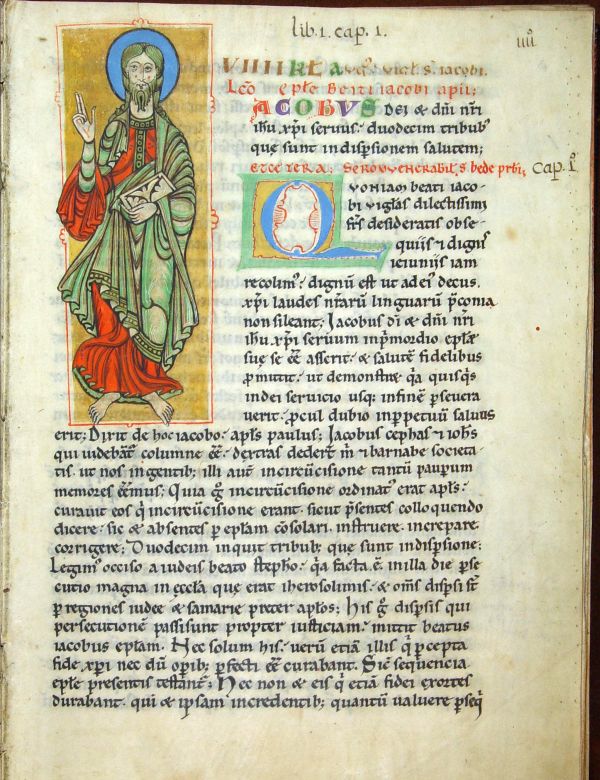 lib. 1. cap. 1.
IIIJ
VIIII KLA
Leo eple Beati iacobi apli;
JACOBUS Dei & dni nri
ihu xpi seruus. duodecim tribub;
que sunt in dispsionem salutem;
ET CETERA; SERMO VENERABILIS bede prbi; Cap. I.
QVONIAM beati iaco-
bi vigilias dilectissimi
frs desideratis obse-
quiis & dignis
ieiuniis iam
recolim; dignu est ut ad ei decus.
xpi laudes nraru linguaru pconia
non sileant; Jacobus di & dni nri
ihu xpi seruum in pmordio eplae
sue se ee asserit. & salute fidelibus
pmittit. ut demonstret qa quisqs
in dei seruicio usq; in fine psevera
uerit. pcul dubio in ppetuu saluus
erit; Dixit de hoc iacobo. apls paulus; Jacobus cephas & iohs
qui uidebant columne ee. dextras dedert m & barnabe societa-
tis. ut nos in gentib; illi aut in circucisione tantu paupum
memores eemus; Quia g in circucisione ordinat erat apls.
curauit eos q in circucisione erant. sicut psentes colloquendo
dicere. sic & absentes p eplam consolari. instruere. increpare.
corrigere; Duodecim inquit tribub; que sunt in dispsione;
Legim occiso a iudeis beato stepho. qa facta e in illa die pse-
cutio magna in eccla que erat iherosolimis. & oms dispsi st
p regiones iudee & samarie preter aplos; His g dispsis qui
persecutione passi sunt propter iusticiam. mittit beatus
iacobus eplam. Nec solum his. ueru etia illis q pcepta
fide xpi nec du opib; pfecti ee curabant. Sic sequencia
eple presentis testant; Nec non & eis q etia fidei exortes
durabant. qui & ipsam in credentib; quantu ualuere pseq